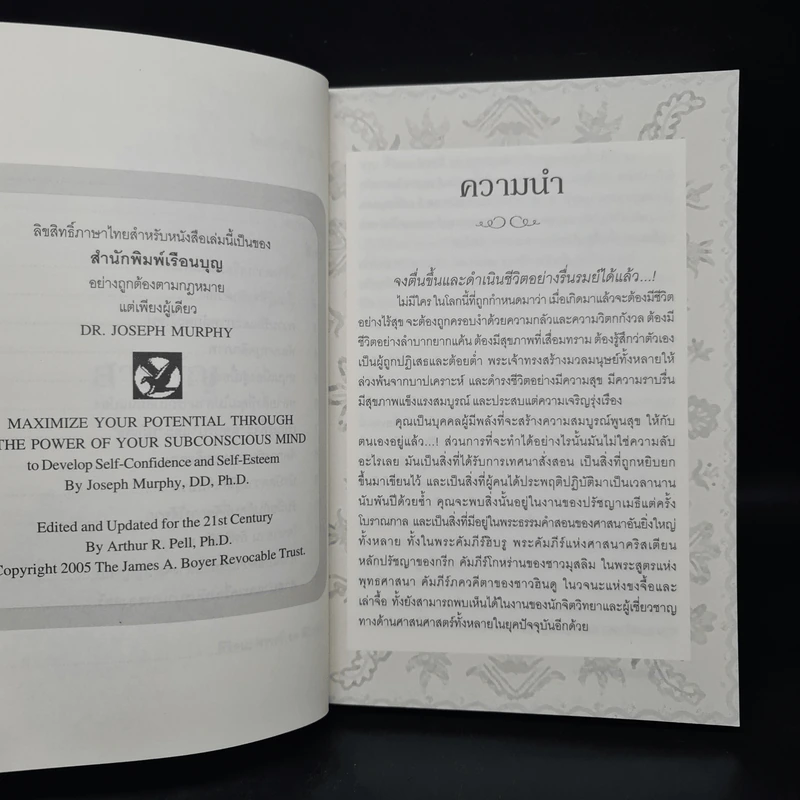 ลิขสิทธิ์ภาษาไทยสำหรับหนังสือเล่มนี้เป็นของ
สำนักพิมพ์เรือนบุญ
อย่างถูกต้องตามกฎหมาย
แต่เพียงผู้เดียว
DR. JOSEPH MURPHY
MAXIMIZE YOUR POTENTIAL THROUGH
THE POWER OF YOUR SUBCONSCIOUS MIND
to Develop Self-Confidence and Self-Esteem
By Joseph Murphy, DD, Ph.D.
Edited and Updated for the 21st Century
By Arthur R. Pell, Ph.D.
Copyright 2005 The James A. Boyer Revocable Trust.
ความนำ
จงตื่นขึ้นและดำเนินชีวิตอย่างรื่นรมย์ได้แล้ว...!
ไม่มีใคร ในโลกนี้ที่ถูกกำหนดมาว่า เมื่อเกิดมาแล้วจะต้องมีชีวิต
อย่างไร้สุข จะต้องถูกครอบงำด้วยความกลัวและความวิตกกังวล ต้องมี
ชีวิตอย่างลำบากยากแค้น ต้องมีสุขภาพที่เสื่อมทราม ต้องรู้สึกว่าตัวเอง
เป็นผู้ถูกปฏิเสธและต้อยต่ำ พระเจ้าทรงสร้างมวลมนุษย์ทั้งหลายให้
ล่วงพ้นจากบาปเคราะห์ และดำรงชีวิตอย่างมีความสุข มีความราบรื่น
มีสุขภาพแข็งแรงสมบูรณ์ และประสบแต่ความเจริญรุ่งเรือง
คุณเป็นบุคคลผู้มีพลังที่จะสร้างความสมบูรณ์พูนสุข ให้กับ
ตนเองอยู่แล้ว...! ส่วนการที่จะทำได้อย่างไรนั้นมันไม่ใช่ความลับ
อะไรเลย มันเป็นสิ่งที่ได้รับการเทศนาสั่งสอน เป็นสิ่งที่ถูกหยิบยก
ขึ้นมาเขียนไว้ และเป็นสิ่งที่ผู้คนได้ประพฤติปฏิบัติมาเป็นเวลานาน
นับพันปีด้วยซ้ำ คุณจะพบสิ่งนั้นอยู่ในงานของปรัชญาเมธีแต่ครั้ง
โบราณกาล และเป็นสิ่งที่มีอยู่ในพระธรรมคำสอนของศาสนาอันยิ่งใหญ่
ทั้งหลาย ทั้งในพระคัมภีร์ฮิบรู พระคัมภีร์แห่งศาสนาคริสเตียน
หลักปรัชญาของกรีก คัมภีร์โกหร่านของชาวมุสลิม ในพระสูตรแห่ง
พุทธศาสนา คัมภีร์ภควคีตาของชาวฮินดู ในวจนะแห่งขงจื้อและ
เล่าจื้อ ทั้งยังสามารถพบเห็นได้ในงานของนักจิตวิทยาและผู้เชี่ยวชาญ
ทางด้านศาสนศาสตร์ทั้งหลายในยุคปัจจุบันอีกด้วย